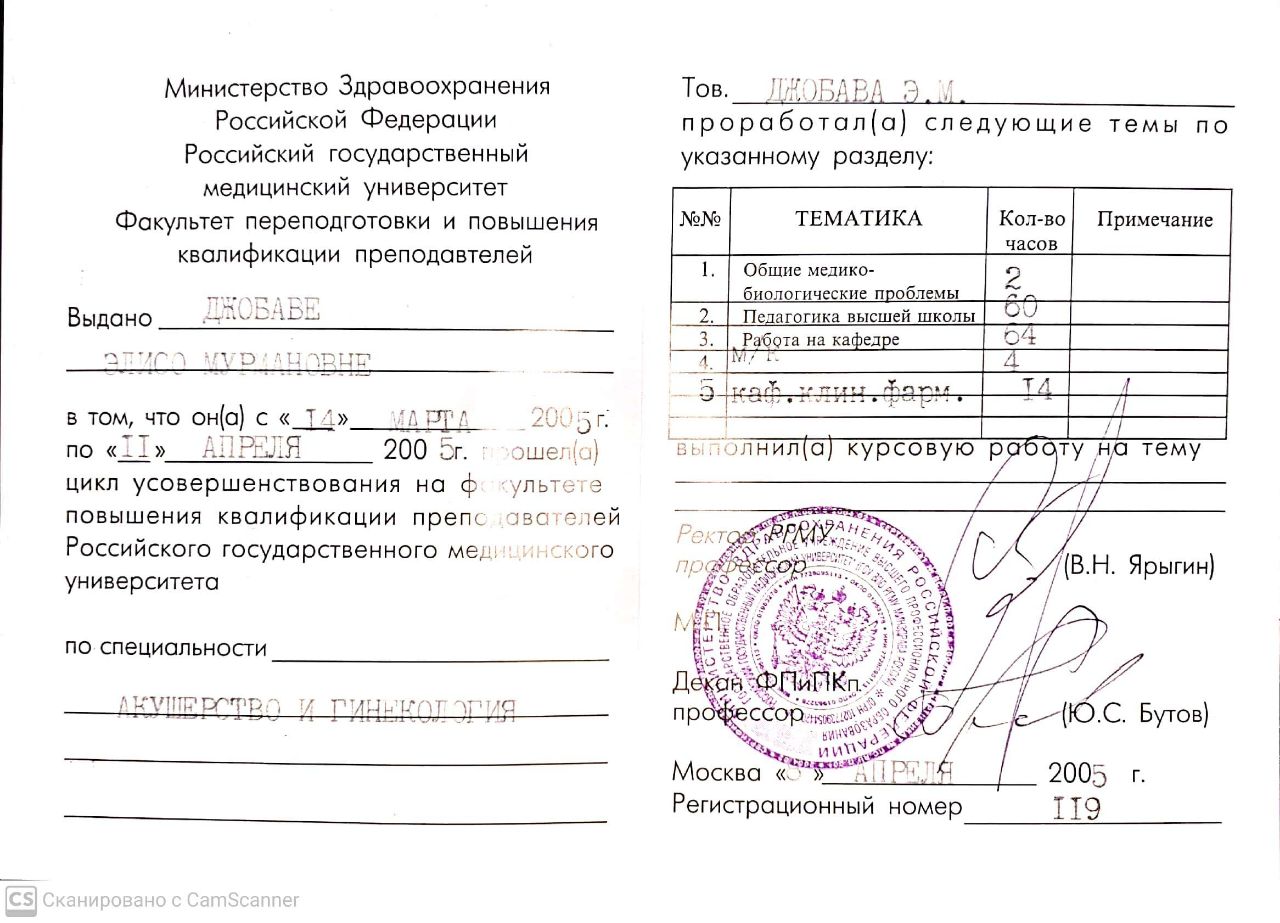 Министерство Здравоохранения
Российской Федерации
Российский государственный
медицинский университет
Факультет переподготовки и повышения
квалификации преподавтелей
Выдано ДЖОБАВЕ
ЭЛИСО МУРМАНОВНЕ
в том, что он(а) с «14» МАРТА 2005г.
по «II» АПРЕЛЯ 200 5г. прошел(а)
цикл усовершенствования на факультете
повышения квалификации преподавателей
Российского государственного медицинского
университета
по специальности
АКУШЕРСТВО И ГИНЕКОЛОГИЯ
Тов. ДЖОБАВА Э.М.
проработал(а) следующие темы по
указанному разделу:
№№ ТЕМАТИКА Кол-во часов Примечание
1. Общие медико-
биологические проблемы 2
2. Педагогика высшей школы 60
3. Работа на кафедре 64
4. М/К 4
5 каф.клин.фарм. I4
выполнил(а) курсовую работу на тему
Ректор РГМУ
профессор (В.Н. Ярыгин)
М.П.
Декан ФПиПКп.
профессор (Ю.С. Бутов)
Москва « » АПРЕЛЯ 2005 г.
Регистрационный номер II9
CS Сканировано с CamScanner